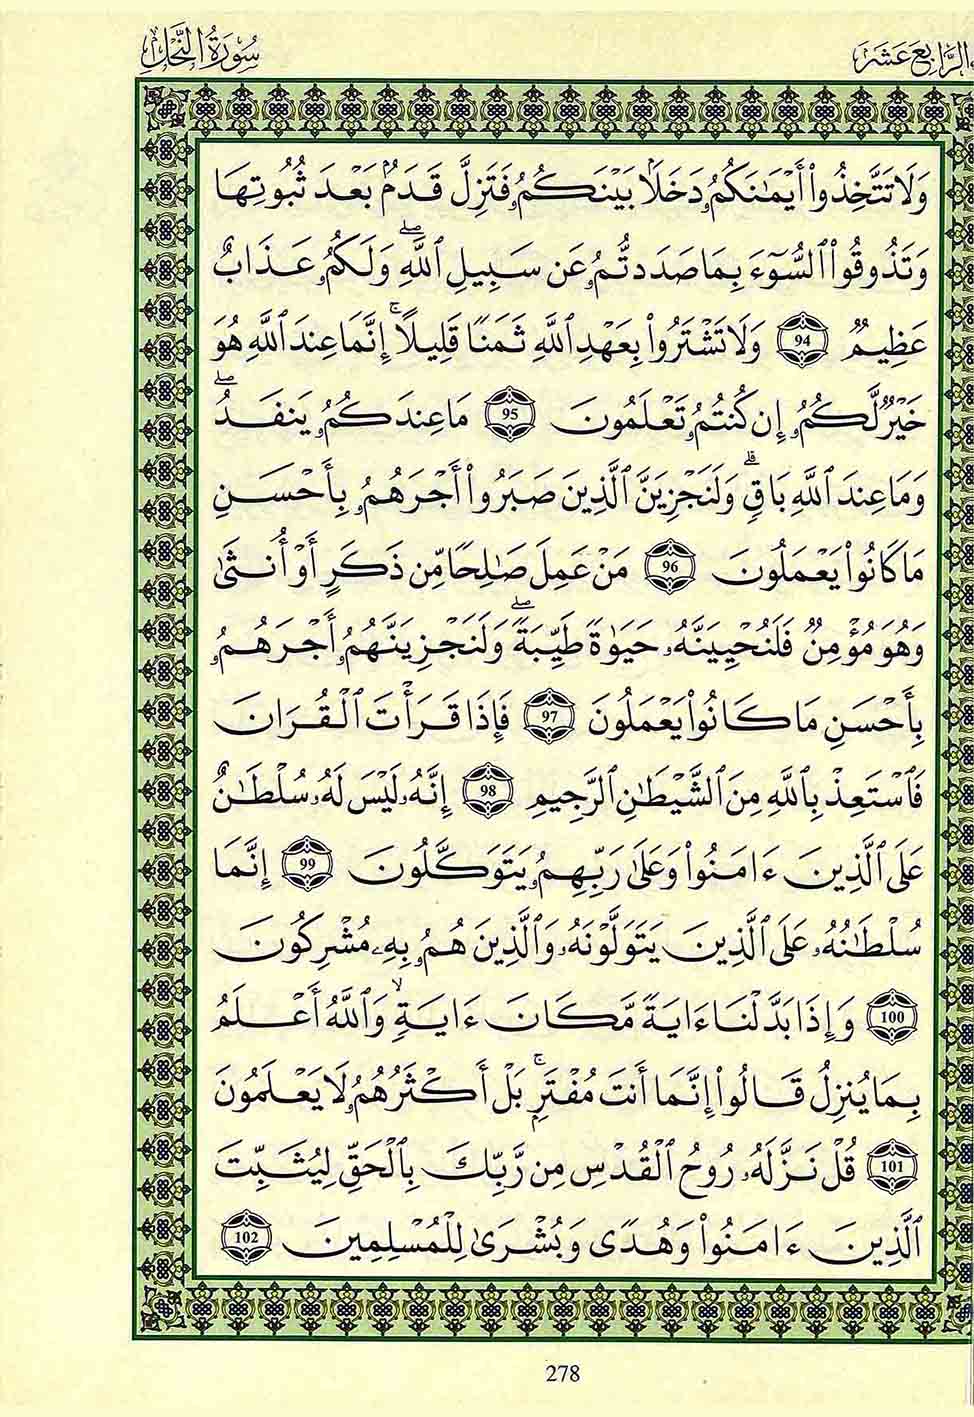 الرَّابِعَ عَشَرَ
سُورَةُ النَّحْلِ
وَلَا تَتَّخِذُوا۟ أَيْمَٰنَكُمُۥ دَخَلَۢا بَيْنَكُمُۥ فَتَزِلَّ قَدَمُۢ بَعْدَ ثُبُوتِهَا
وَتَذُوقُوا۟ ٱلسُّوٓءَ بِمَا صَدَدتُّمُۥ عَن سَبِيلِ ٱللَّهِ ۖ وَلَكُمُۥ عَذَابٌ
عَظِيمٌ 94 وَلَا تَشْتَرُوا۟ بِعَهْدِ ٱللَّهِ ثَمَنًا قَلِيلًا ۚ إِنَّمَا عِندَ ٱللَّهِ هُوَ
خَيْرٌ لَّكُمُۥ إِن كُنتُمُۥ تَعْلَمُونَ 95 مَا عِندَكُمُۥ يَنفَدُ ۖ
وَمَا عِندَ ٱللَّهِ بَاقٍ ۗ وَلَنَجْزِيَنَّ ٱلَّذِينَ صَبَرُوا۟ أَجْرَهُمُۥ بِأَحْسَنِ
مَا كَانُوا۟ يَعْمَلُونَ 96 مَنْ عَمِلَ صَٰلِحًا مِّن ذَكَرٍ أَوْ أُنثَىٰ
وَهُوَ مُؤْمِنٌ فَلَنُحْيِيَنَّهُۥ حَيَوٰةً طَيِّبَةً ۖ وَلَنَجْزِيَنَّهُمُۥ أَجْرَهُمُۥ
بِأَحْسَنِ مَا كَانُوا۟ يَعْمَلُونَ 97 فَإِذَا قَرَأْتَ ٱلْقُرَانَ
فَٱسْتَعِذْ بِٱللَّهِ مِنَ ٱلشَّيْطَٰنِ ٱلرَّجِيمِ 98 إِنَّهُۥ لَيْسَ لَهُۥ سُلْطَٰنٌ
عَلَى ٱلَّذِينَ ءَامَنُوا۟ وَعَلَىٰ رَبِّهِمُۥ يَتَوَكَّلُونَ 99 إِنَّمَا
سُلْطَٰنُهُۥ عَلَى ٱلَّذِينَ يَتَوَلَّوْنَهُۥ وَٱلَّذِينَ هُمُۥ بِهِۦ مُشْرِكُونَ
100 وَإِذَا بَدَّلْنَا ءَايَةً مَّكَانَ ءَايَةٍ ۙ وَٱللَّهُ أَعْلَمُ
بِمَا يُنزِلُ قَالُوا۟ إِنَّمَا أَنتَ مُفْتَرٍۭ ۚ بَلْ أَكْثَرُهُمُۥ لَا يَعْلَمُونَ
101 قُلْ نَزَّلَهُۥ رُوحُ ٱلْقُدْسِ مِن رَّبِّكَ بِٱلْحَقِّ لِيُثَبِّتَ
ٱلَّذِينَ ءَامَنُوا۟ وَهُدًى وَبُشْرَىٰ لِلْمُسْلِمِينَ 102
278